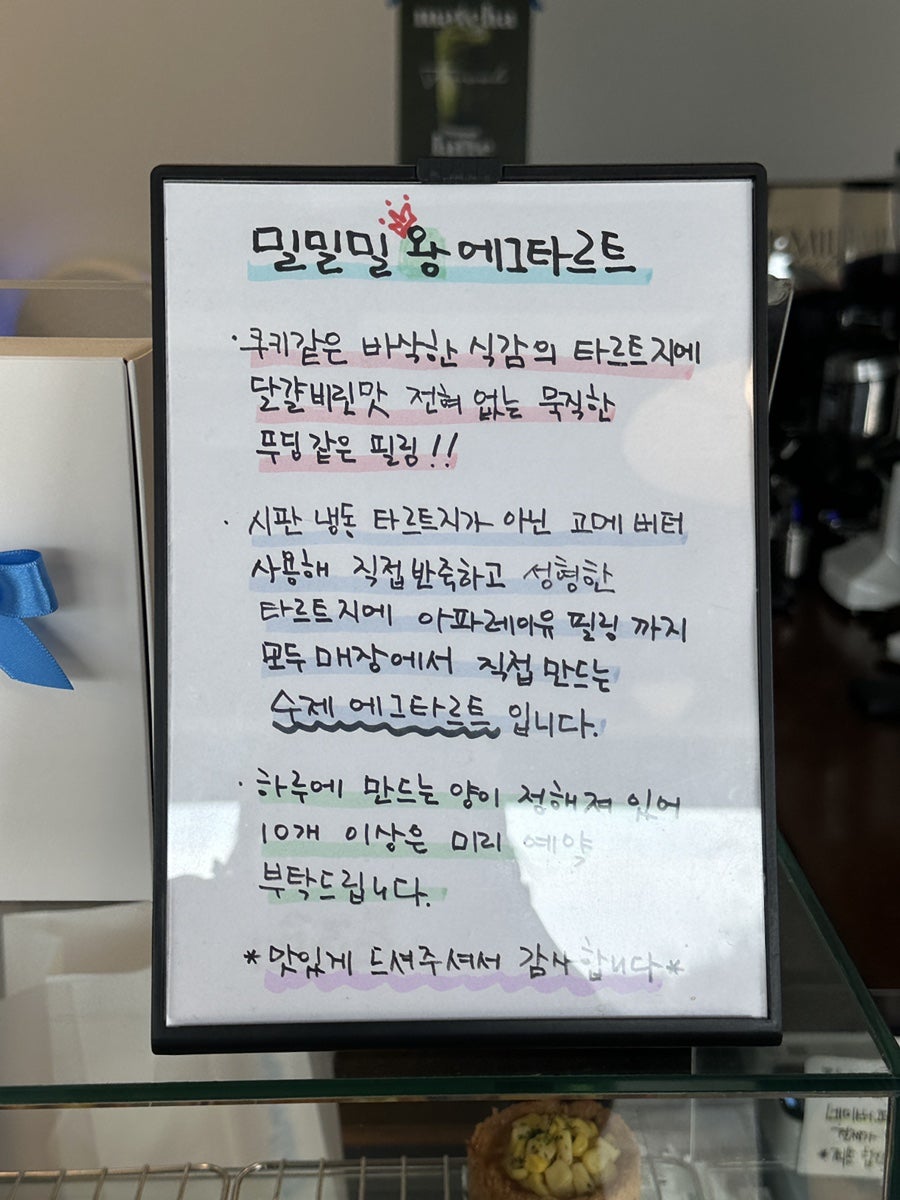 matcha
밀밀밀 왕 에그타르트
· 쿠키같은 바삭한 식감의 타르트지에
달걀비린맛 전혀 없는 묵직한
푸딩같은 필링!!
· 시판 냉동 타르트지가 아닌 고메 버터
사용해 직접반죽하고 성형한
타르트지에 아파레이유 필링 까지
모두 매장에서 직접 만드는
수제 에그타르트 입니다.
· 하루에 만드는 양이 정해져 있어
10개 이상은 미리 예약
부탁드립니다.
*맛있게 드셔주셔서 감사합니다*